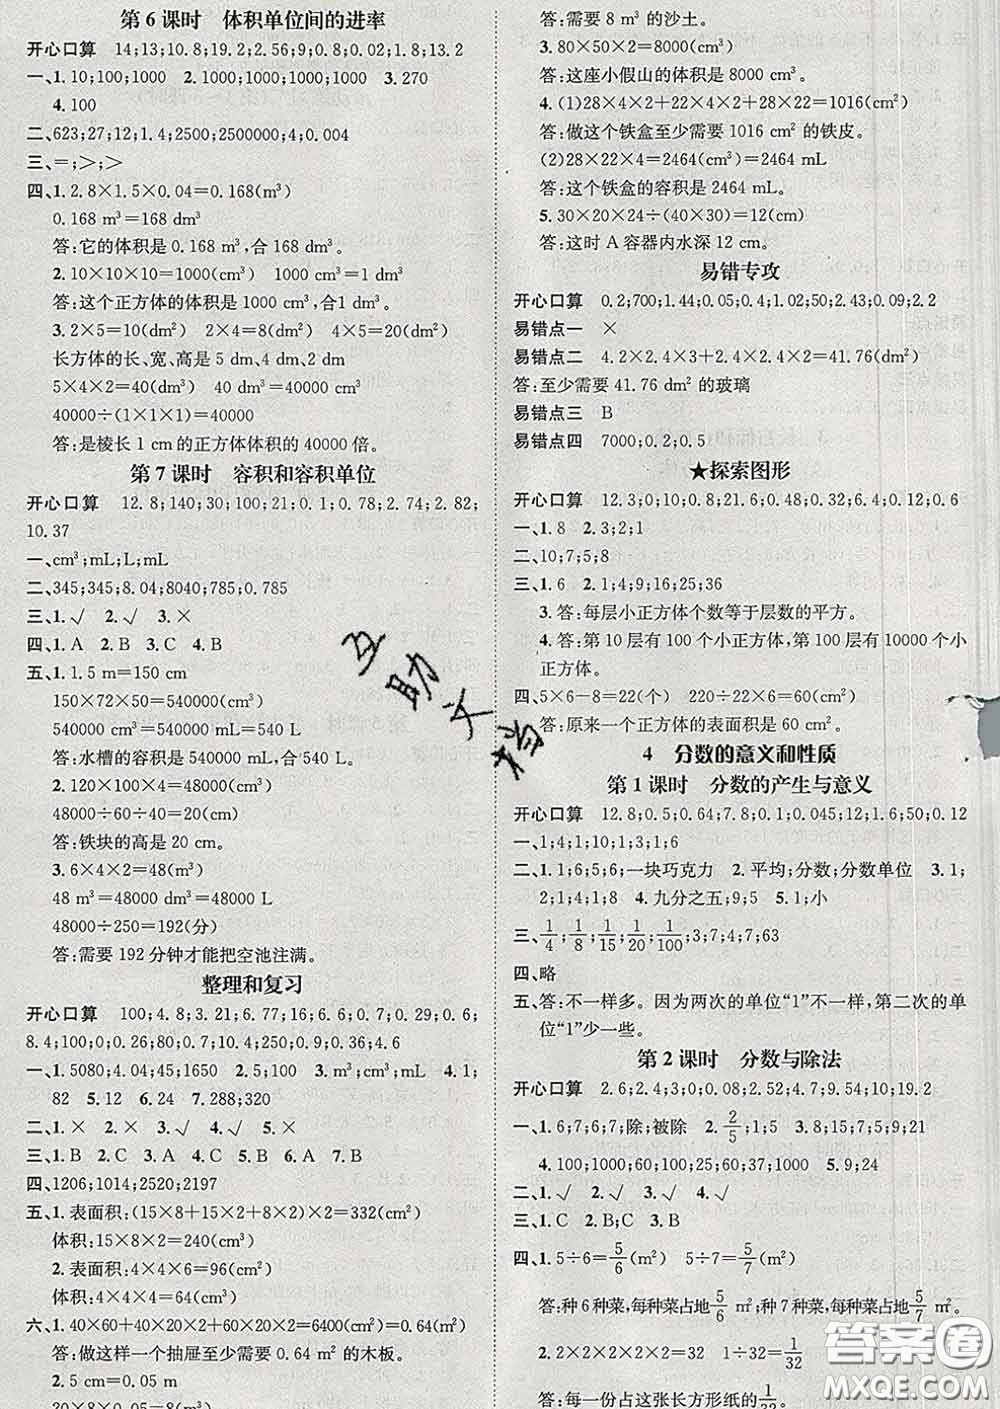 第6课时 体积单位间的进率
开心口算 14;13;10.8;19.2;2.56;9;0.8;0.02;1.8;13.2
一、1.10;100;1000 2.1000;1000 3.270
4.100
二、623;27;12;1.4;2500;2500000;4;0.004
三、=;>;>
四、1.2.8×1.5×0.04=0.168(m³)
0.168 m³=168 dm³
答:它的体积是0.168 m³,合168 dm³。
2.10×10×10=1000(cm³)
答:这个正方体的体积是1000 cm³,合1 dm³。
3.2×5=10(dm²) 2×4=8(dm²) 4×5=20(dm²)
长方体的长、宽、高是5 dm、4 dm、2 dm。
5×4×2=40(dm³) 40 dm³=40000(cm³)
40000÷(1×1×1)=40000
答:是棱长1 cm的正方体体积的40000倍。
第7课时 容积和容积单位
开心口算 12.8;140;30;100;21;0.1;0.78;2.74;2.82;
10.37
一、cm³;mL;L;mL
二、345;345;8.04;8040;785;0.785
三、1.√ 2.√ 3.×
四、1.A 2.B 3.C 4.B
五、1.1.5 m=150 cm
150×72×50=540000(cm³)
540000 cm³=540000 mL=540 L
答:水槽的容积是540000 mL,合540 L。
2.120×100×4=48000(cm³)
48000÷60÷40=20(cm)
答:铁块的高是20 cm。
3.6×4×2=48(m³)
48 m³=48000 dm³=48000 L
48000÷250=192(分)
答:需要192分钟才能把空池注满。
整理和复习
开心口算 100;4.8;3.21;6.77;16;6.6;0.7;0.29;0.6;
8.4;100;0;0.26;80;0.7;10.4;250;0.9;0.36;4.6
一、1.5080;4.04;45;1650 2.5;100 3.m³;cm³;mL 4.1;
82 5.12 6.24 7.288;320
二、1.× 2.× 3.√ 4.√ 5.√
三、1.B 2.C 3.A 4.C 5.B
四、1206;1014;2520;2197
五、1.表面积:(15×8+15×2+8×2)×2=332(cm²)
体积:15×8×2=240(cm³)
2.表面积:4×4×6=96(cm²)
体积:4×4×4=64(cm³)
六、1.40×60+40×20×2+60×20×2=6400(cm²)
答:做这样一个抽屉至少需要0.64 m²的木板。
2.5 cm=0.05 m
答:需要8 m³的沙土。
3.80×50×2=8000(cm³)
答:这座小假山的体积是8000 cm³。
4.(1)28×4×2+22×4×2+28×22=1016(cm²)
答:做这个铁盒至少需要1016 cm²的铁皮。
(2)28×22×4=2464(cm³)=2464 mL
答:这个铁盒的容积是2464 mL。
5.30×20×24÷(40×30)=12(cm)
答:这时A容器内水深12 cm。
易错专攻
开心口算 0.2;700;1.44;0.05;0.4;1.02;50;2.43;0.09;2.2
易错点一 ×
易错点二 4.2×2.4×3+2.4×2.4×2=41.76(dm²)
答:至少需要41.76 dm²的玻璃
易错点三 B
易错点四 7000;0.2;0.5
★探索图形
开心口算 12.3;0;10;0.8;21.6;0.48;0.32;6.4;0.12;0.6
一、1.8 2.3;2;1
二、10;7;5;8
三、1.6 2.1;4;9;16;25;36
3.答:每层小正方体个数等于层数的平方。
4.答:第10层有100个小正方体,第100层有10000个小
正方体。
四、5×6-8=22(个) 220÷22×6=60(cm²)
答:原来一个正方体的表面积是60 cm²。
4 分数的意义和性质
第1课时 分数的产生与意义
开心口算 12.8;0.5;0.64;7.8;0.1;0.045;12;1.6;50;0.12
一、1;4;1;10;1;3;1;6
二、1.1;6;5;6;一块巧克力 2.平均;分数;分数单位 3.1;
2;1;4;1;8 4.九分之五;9;5 5.1;小
三、1/4;1/8;1/15;1/20;1/100;3;7;4;7;63
四、略
五、答:不一样多。因为两次的单位“1”不一样,第二次的单
位“1”少一些。
第2课时 分数与除法
开心口算 2.6;2.4;3;0;0.08;2.52;4.7;9.54;10;19.2
一、1.6;7;6;7;除;被除 2.2/5;1;5 3.8;15;7;8;9;21
4.100;1000;60;100;24;25;37;1000 5.9;24
二、1.√ 2.√ 3.√ 4.√
三、1.C 2.B 3.C
四、1.5÷6=5/6(m²) 5÷7=5/7(m²)
答:种6种菜,每种菜占地5/6 m²;种7种菜,每种菜占地5/7 m²。
2.2×2×2×2×2=32 1÷32=1/32
互助文档
答案圈
MXQE.COM